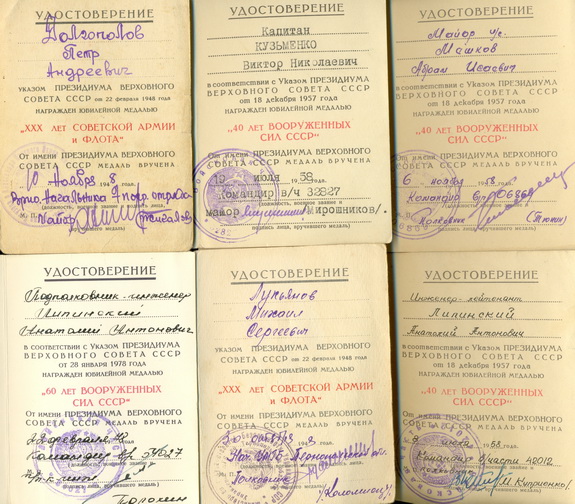 УДОСТОВЕРЕНИЕ
Долгополов
Петр
Андреевич
указом ПРЕЗИДИУМА ВЕРХОВНОГО
СОВЕТА СССР от 22 февраля 1948 года
НАГРАЖДЕН ЮБИЛЕЙНОЙ МЕДАЛЬЮ
„XXX ЛЕТ СОВЕТСКОЙ АРМИИ
и ФЛОТА"
От имени ПРЕЗИДИУМА ВЕРХОВНОГО
СОВЕТА СССР МЕДАЛЬ ВРУЧЕНА
10 ноября 1948
Врио Начальника 9 погр. отряда
Майор
УДОСТОВЕРЕНИЕ
Капитан
КУЗЬМЕНКО
Виктор Николаевич
в соответствии с Указом ПРЕЗИДИУМА
ВЕРХОВНОГО СОВЕТА СССР
от 18 декабря 1957 года
НАГРАЖДЕН ЮБИЛЕЙНОЙ МЕДАЛЬЮ
„40 ЛЕТ ВООРУЖЕННЫХ
СИЛ СССР"
От имени ПРЕЗИДИУМА ВЕРХОВНОГО
СОВЕТА СССР МЕДАЛЬ ВРУЧЕНА
июля 1958 г.
Командир в/ч 32327
майор /Мирошников/.
(подпись лица, вручившего медаль)
УДОСТОВЕРЕНИЕ
Майор
Машков
Абрам Исаевич
в соответствии с Указом ПРЕЗИДИУМА
ВЕРХОВНОГО СОВЕТА СССР
от 18 декабря 1957 года
НАГРАЖДЕН ЮБИЛЕЙНОЙ МЕДАЛЬЮ
„40 ЛЕТ ВООРУЖЕННЫХ
СИЛ СССР"
От имени ПРЕЗИДИУМА ВЕРХОВНОГО
СОВЕТА СССР МЕДАЛЬ ВРУЧЕНА
6 ноября 1958 г.
Командир
Полковник (Тютин)
подпись лица, вручившего медаль)
УДОСТОВЕРЕНИЕ
Подполковник-инженер
Липинский
Анатолий Антонович
в соответствии с Указом ПРЕЗИДИУМА
ВЕРХОВНОГО СОВЕТА СССР
от 28 января 1978 года
НАГРАЖДЕН ЮБИЛЕЙНОЙ МЕДАЛЬЮ
„60 ЛЕТ ВООРУЖЕННЫХ
СИЛ СССР"
От имени ПРЕЗИДИУМА ВЕРХОВНОГО
СОВЕТА СССР МЕДАЛЬ ВРУЧЕНА
февраля
Командир
УДОСТОВЕРЕНИЕ
Лукьянов
Михаил
Сергеевич
указом ПРЕЗИДИУМА ВЕРХОВНОГО
СОВЕТА СССР от 22 февраля 1948 года
НАГРАЖДЕН ЮБИЛЕЙНОЙ МЕДАЛЬЮ
„XXX ЛЕТ СОВЕТСКОЙ АРМИИ
и ФЛОТА"
От имени ПРЕЗИДИУМА ВЕРХОВНОГО
СОВЕТА СССР МЕДАЛЬ ВРУЧЕНА
октября 1948
Полковник
УДОСТОВЕРЕНИЕ
Инженер-лейтенант
Липинский
Анатолий Антонович
в соответствии с Указом ПРЕЗИДИУМА
ВЕРХОВНОГО СОВЕТА СССР
от 18 декабря 1957 года
НАГРАЖДЕН ЮБИЛЕЙНОЙ МЕДАЛЬЮ
„40 ЛЕТ ВООРУЖЕННЫХ
СИЛ СССР"
От имени ПРЕЗИДИУМА ВЕРХОВНОГО
СОВЕТА СССР МЕДАЛЬ ВРУЧЕНА
1958 г.
Командир в/части 42012